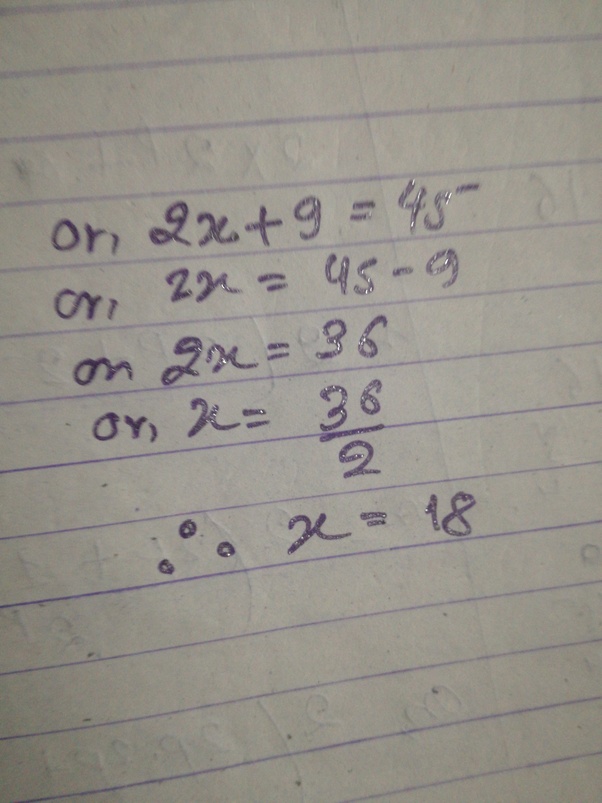 or, 2x + 9 = 45
or, 2x = 45 - 9
or 2x = 36
or, x = 36/2
∴ x = 18